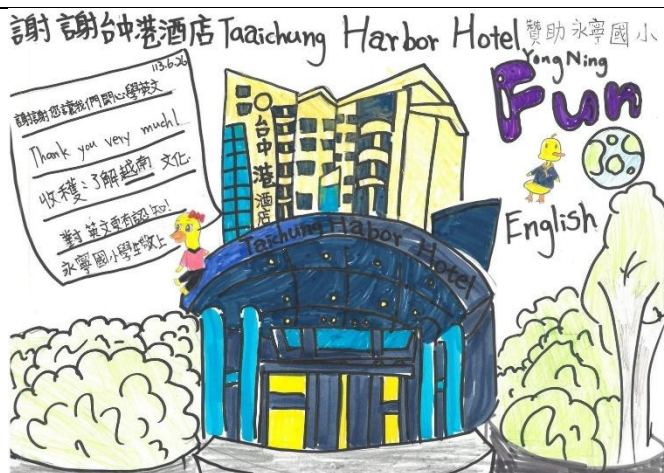 謝謝台中港酒店Taaichung Harbor Hotel贊助永寧國小
Yong Ning
Fun
English
113.6.26
謝謝您讓我們開心學英文
Thank you very much!
收穫:了解越南文化.
對英文更有認知!
永寧國小學生敬上
台中港酒店
Taichung Habor Hotel